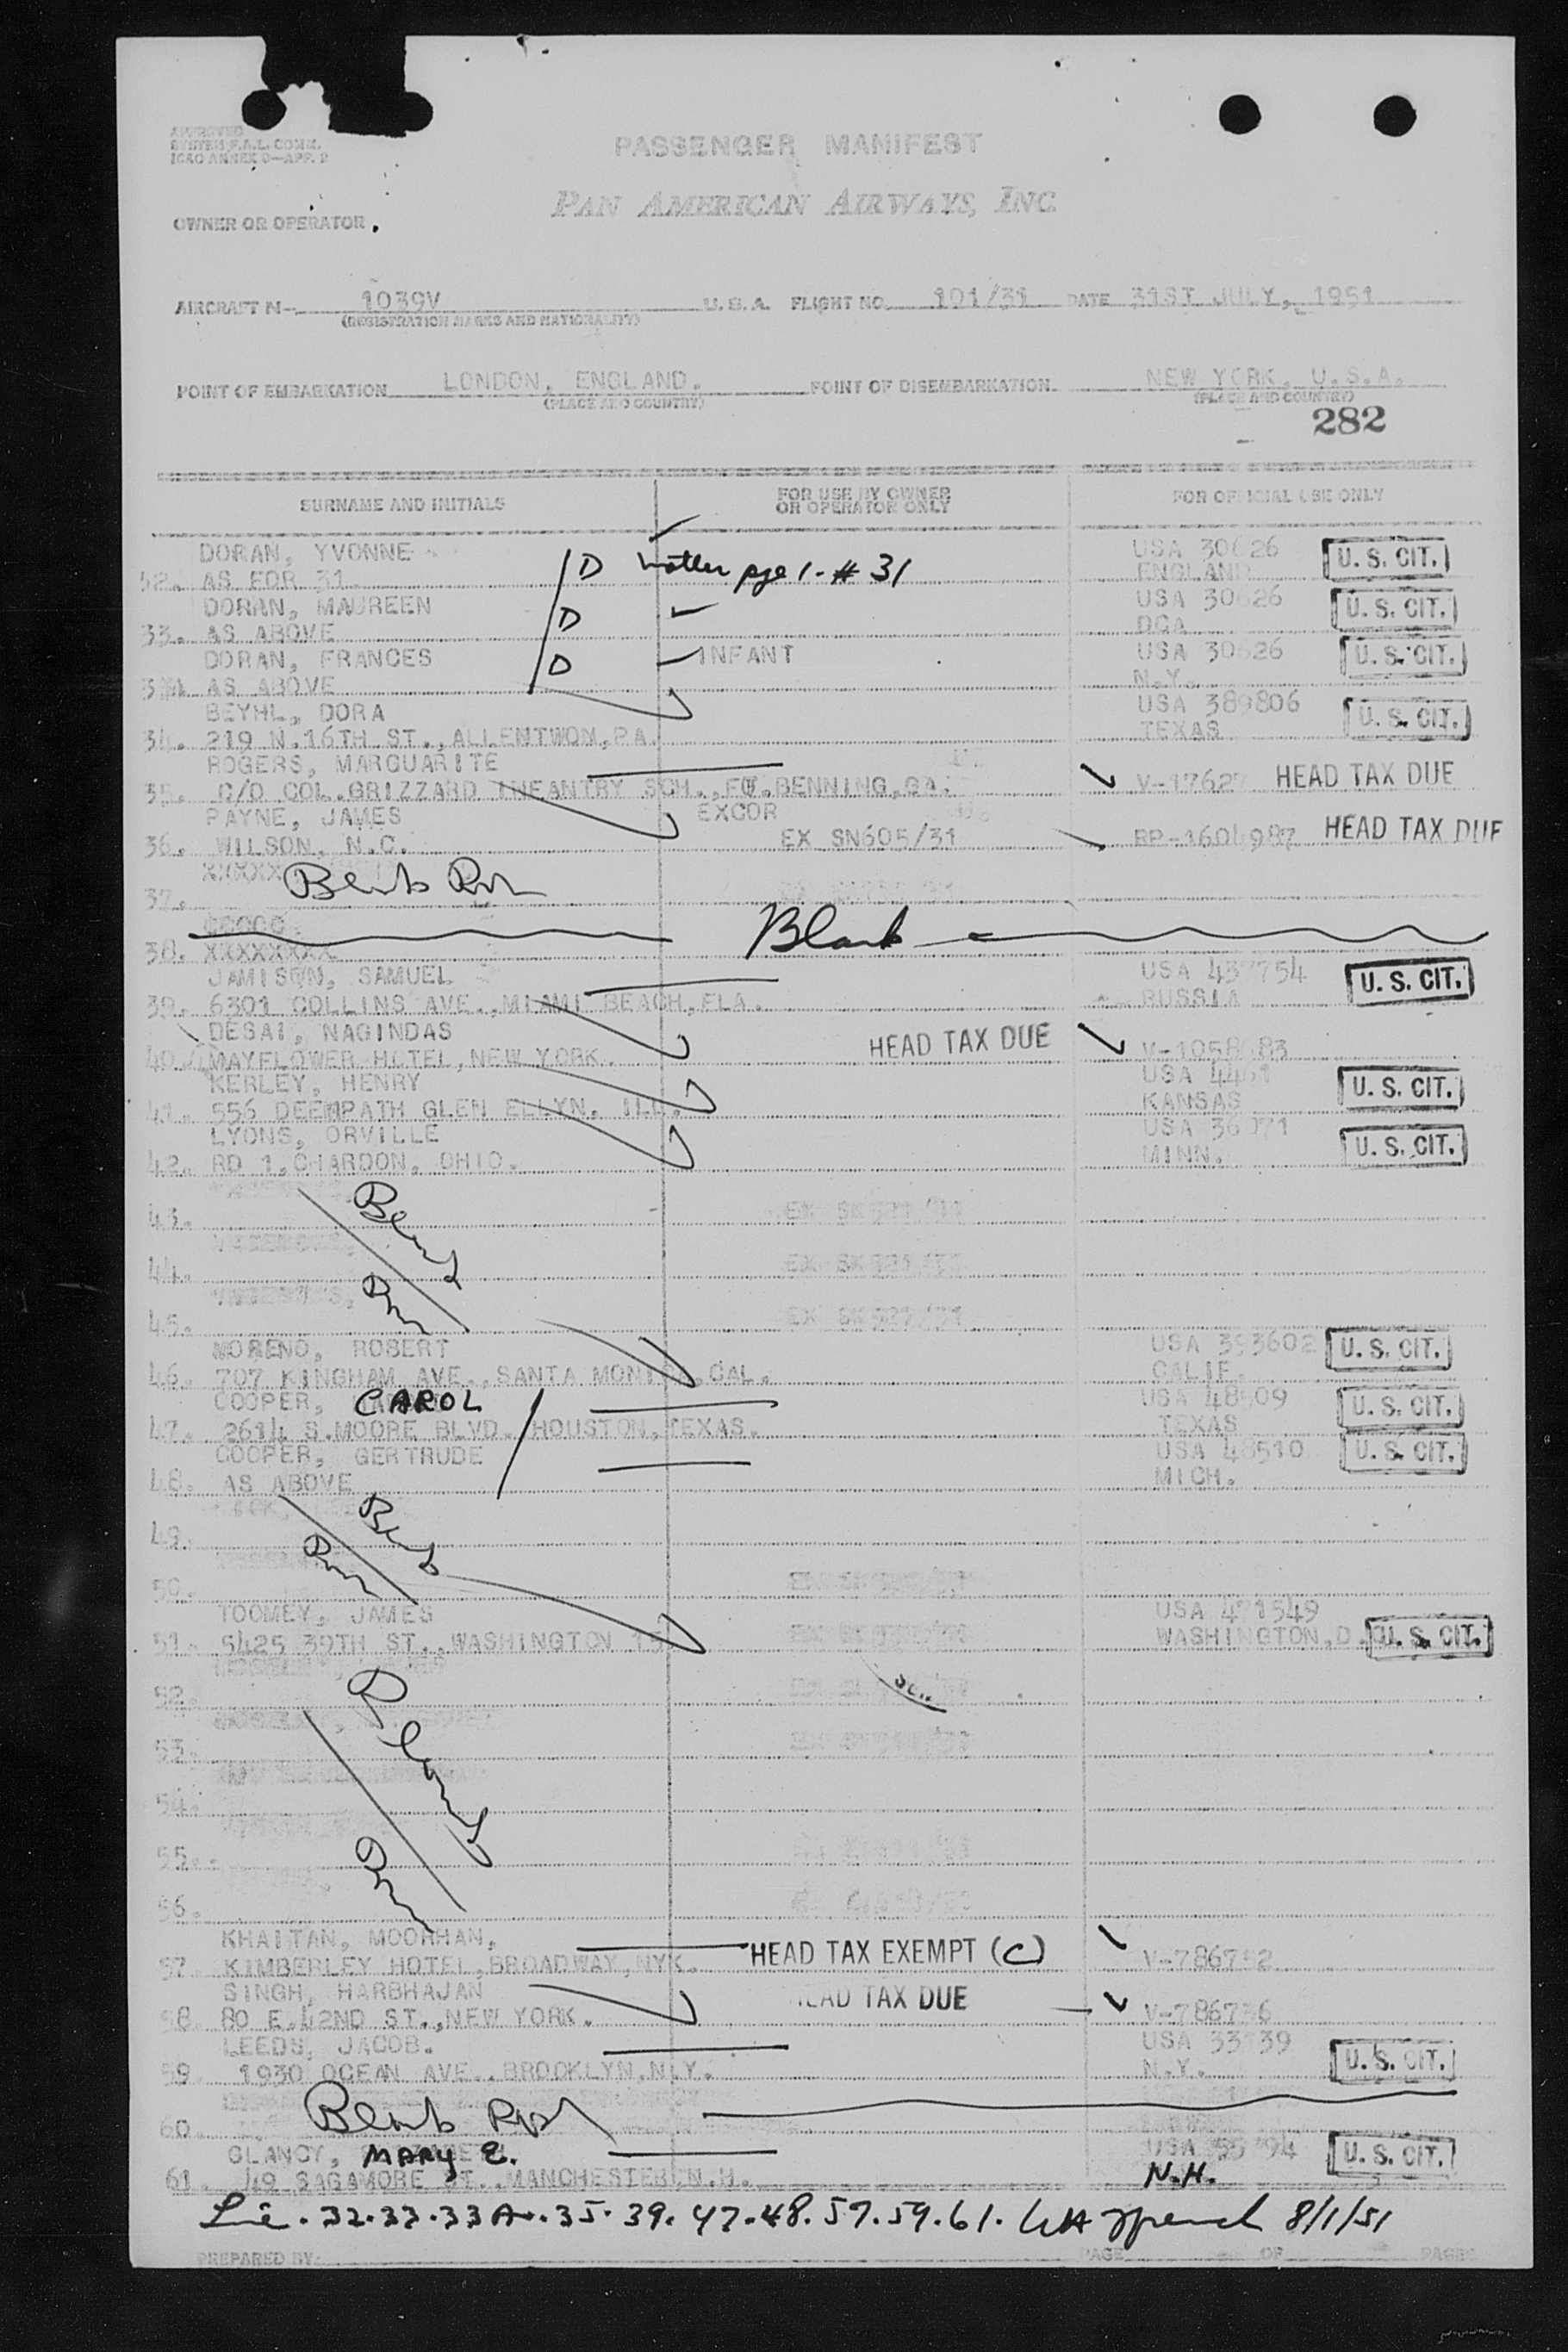 APPROVED
SYSTEM F.A.L. COMM.
ICAO ANNEX 9—APP. 2
PASSENGER MANIFEST
PAN AMERICAN AIRWAYS, INC.
OWNER OR OPERATOR
AIRCRAFT N- 1039V U.S.A. FLIGHT NO. 101/31 DATE 31ST JULY, 1951
(REGISTRATION MARKS AND NATIONALITY)
POINT OF EMBARKATION LONDON, ENGLAND. POINT OF DISEMBARKATION NEW YORK, U.S.A.
(PLACE AND COUNTRY) (PLACE AND COUNTRY)
282
SURNAME AND INITIALS FOR USE BY OWNER OR OPERATOR ONLY FOR OFFICIAL USE ONLY
DORAN, YVONNE USA 30626 U. S. CIT.
32. AS FOR 31. D Mother pge 1 - # 31 ENGLAND
DORAN, MAUREEN USA 30626 U. S. CIT.
33. AS ABOVE D DCA
DORAN, FRANCES D INFANT USA 30626 U. S. CIT.
33A AS ABOVE N.Y.
BEYHL, DORA USA 389806 U. S. CIT.
34. 219 N.16TH ST., ALLENTWON, PA. TEXAS
ROGERS, MARGUARITE
35. C/O COL.GRIZZARD INFANTRY SCH.,FT.BENNING,GA. V-17627 HEAD TAX DUE
PAYNE, JAMES EXCOR
36. WILSON, N.C. EX SN605/31 RP-1604987 HEAD TAX DUE
XXXXX Blank
37.
Blank
38. XXXXXXXX
JAMISON, SAMUEL USA 437754 U. S. CIT.
39. 6301 COLLINS AVE., MIAMI BEACH, FLA. RUSSIA
DESAI, NAGINDAS HEAD TAX DUE
40. MAYFLOWER HOTEL, NEW YORK.
KERLEY, HENRY USA 4461 U. S. CIT.
41. 556 DEEMPATH GLEN ELLYN, ILL. KANSAS
LYONS, ORVILLE USA 36071 U. S. CIT.
42. RD 1, CHARDON, OHIO. MINN.
Blank
43.
44.
45.
MORENO, ROBERT USA 393602 U. S. CIT.
46. 707 KINGHAM AVE., SANTA MONICA, CAL. CALIF.
COOPER, CAROL USA 48509 U. S. CIT.
47. 2614 S.MOORE BLVD. HOUSTON, TEXAS. TEXAS
COOPER, GERTRUDE USA 48510 U. S. CIT.
48. AS ABOVE MICH.
Blank
49.
50.
TOOMEY, JAMES USA 471549
51. 5425 39TH ST., WASHINGTON 15 WASHINGTON, D. U. S. CIT.
52.
Blank
53.
54.
55.
56.
KHAITAN, MOORHAN,
57. KIMBERLEY HOTEL, BROADWAY, NYK. HEAD TAX EXEMPT (C) V-786752
SINGH, HARBHAJAN HEAD TAX DUE
58. 80 E.42ND ST., NEW YORK. V-786736
LEEDS, JACOB. USA 33139 U. S. CIT.
59. 1930 OCEAN AVE., BROOKLYN, N.Y. N.Y.
Blank
60.
CLANCY, MARY E. U. S. CIT.
61. 49 SAGAMORE ST., MANCHESTER N.H. N.H.
32. 33. 33A. 35. 39. 47. 48. 57. 59. 61. 8/1/51
PREPARED BY: PAGE OF PAGES